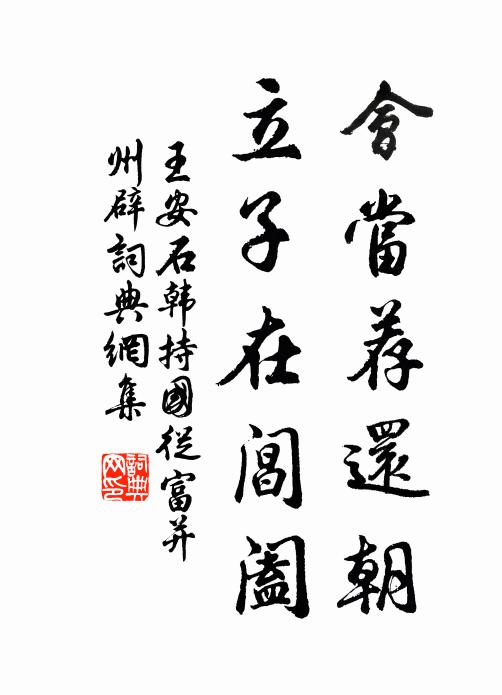 會當荐還朝
立子在閶闔
王安石韩持國從富并
州辟詞典網集
詞典
网印